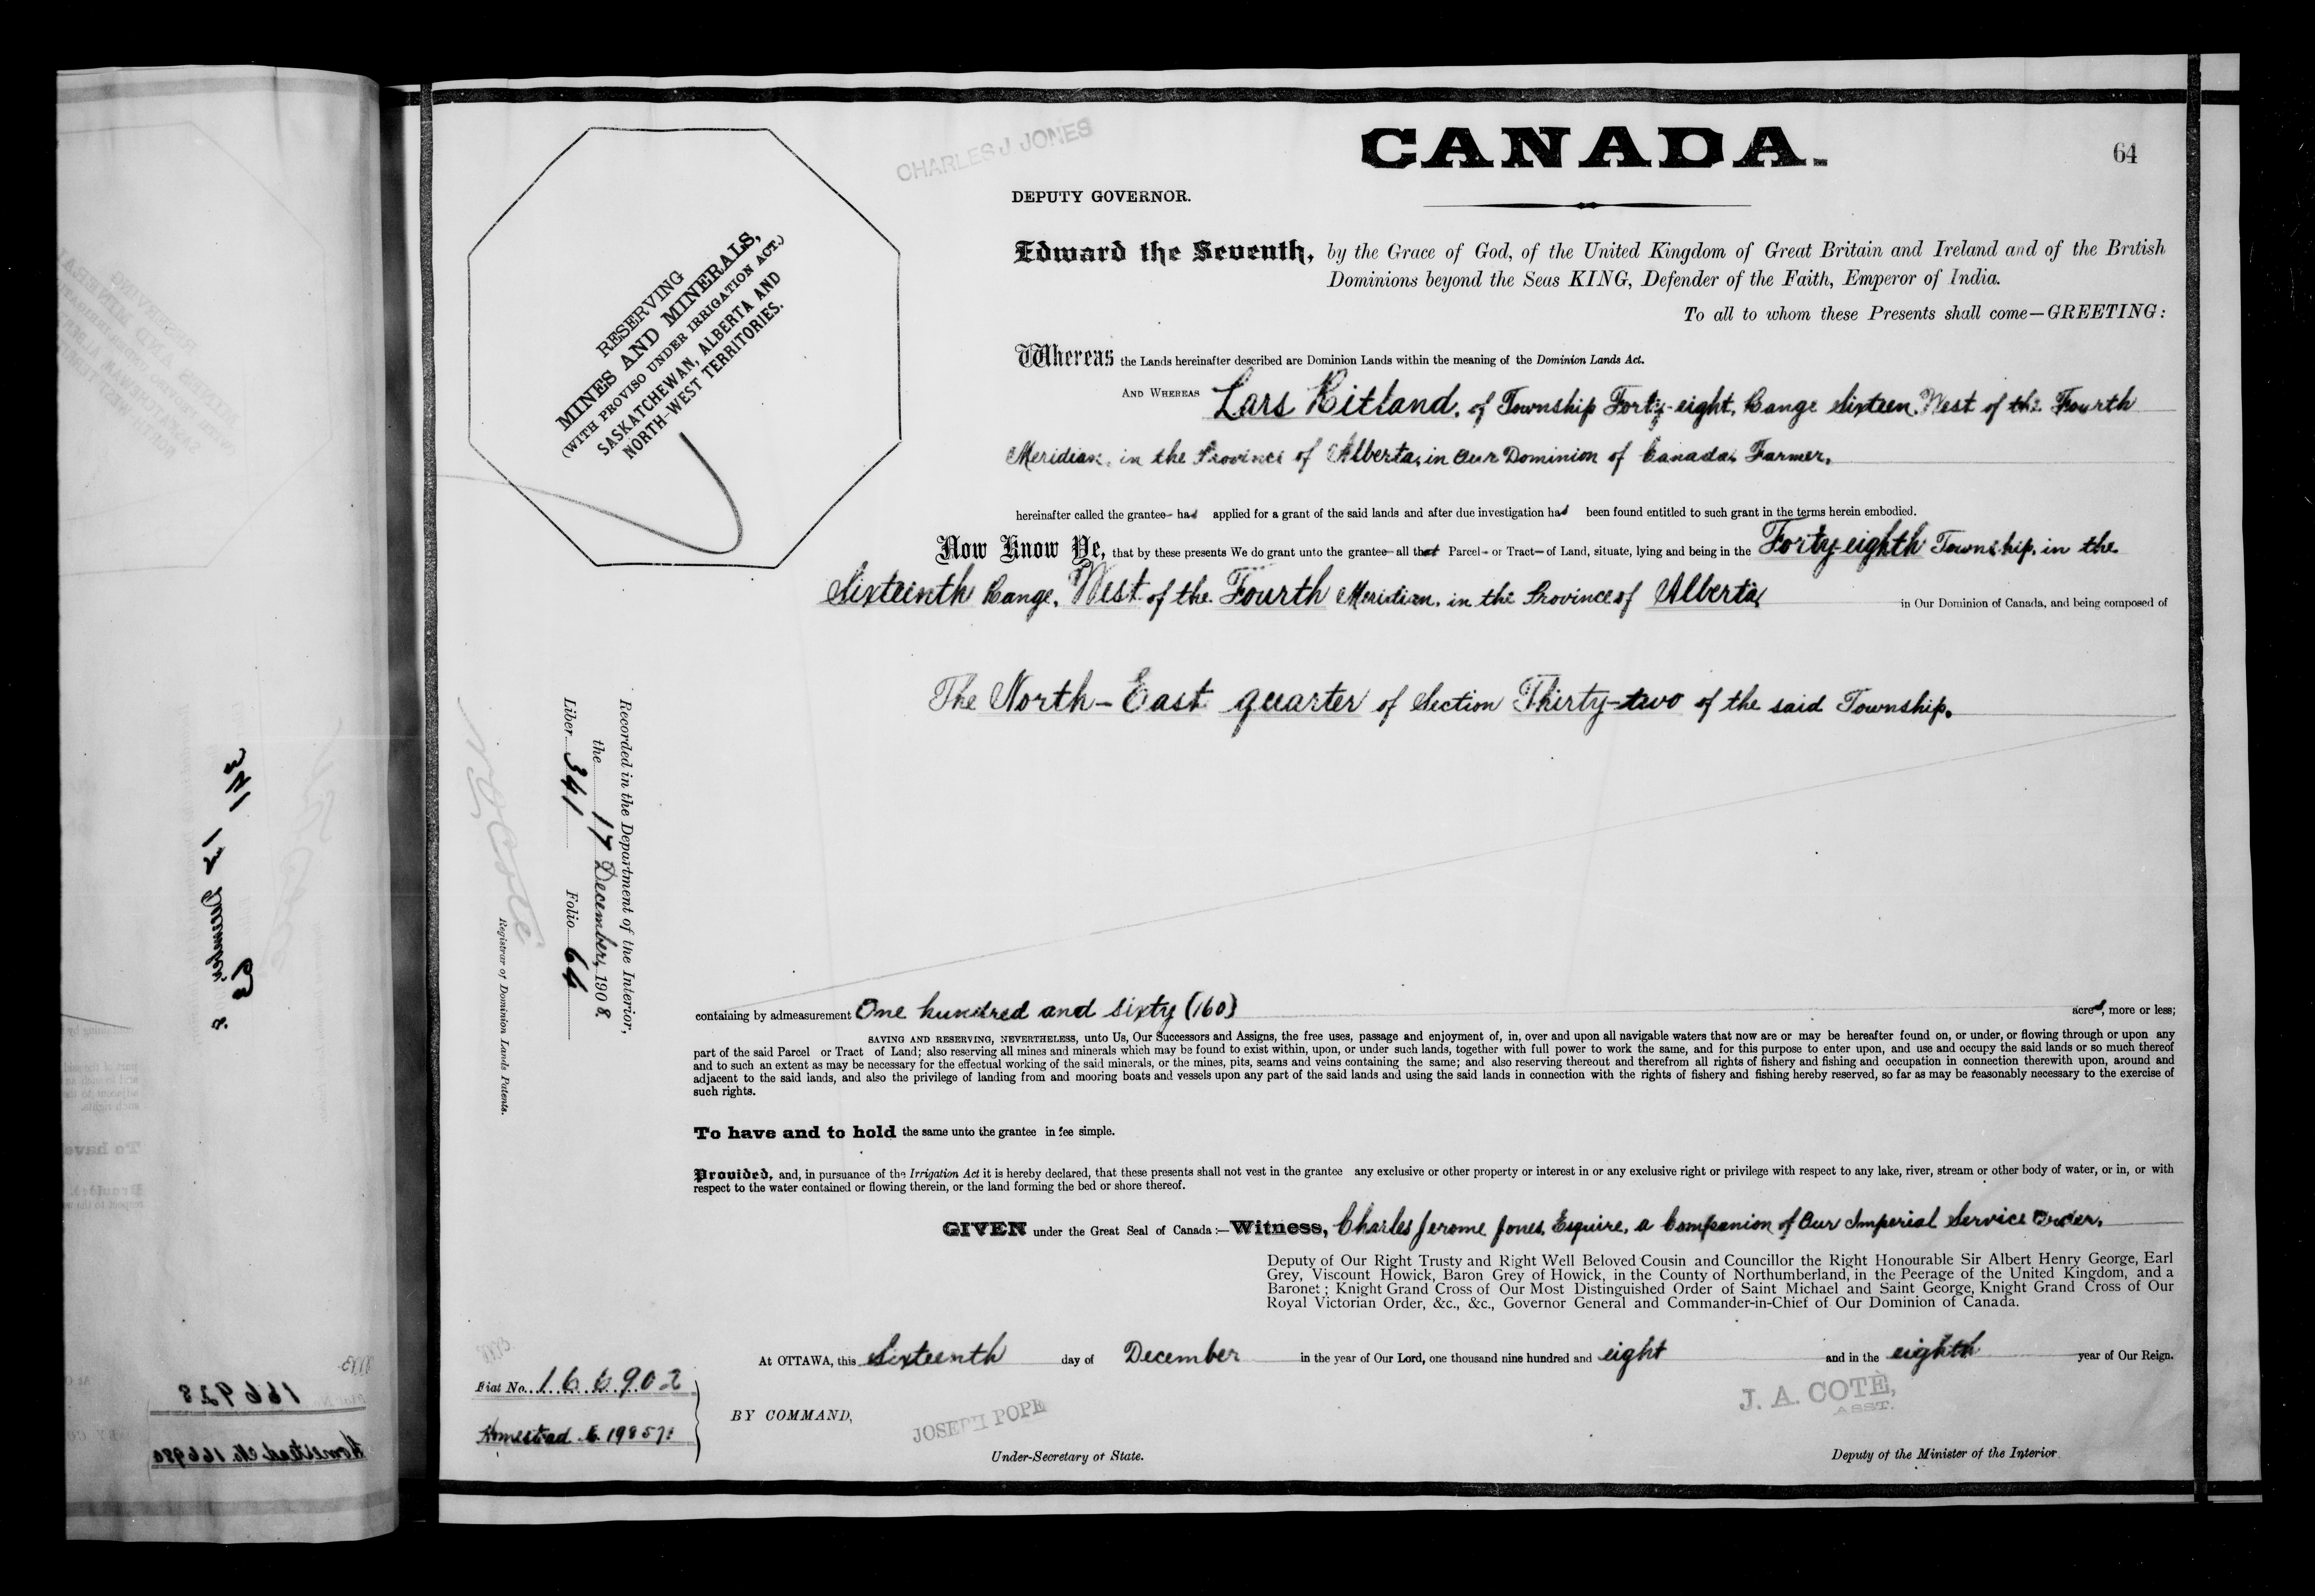 CHARLES J JONES
CANADA.
64
DEPUTY GOVERNOR.
Edward the Seventh, by the Grace of God, of the United Kingdom of Great Britain and Ireland and of the British
Dominions beyond the Seas KING, Defender of the Faith, Emperor of India.
To all to whom these Presents shall come—GREETING:
RESERVING
MINES AND MINERALS,
(WITH PROVISO UNDER IRRIGATION ACT.)
SASKATCHEWAN, ALBERTA AND
NORTH-WEST TERRITORIES.
Whereas the Lands hereinafter described are Dominion Lands within the meaning of the Dominion Lands Act.
AND WHEREAS Lars Kitland, of Township Forty-eight, Range Sixteen, West of the Fourth
Meridian, in the Province of Alberta, in Our Dominion of Canada, Farmer,
hereinafter called the grantee— had applied for a grant of the said lands and after due investigation had been found entitled to such grant in the terms herein embodied.
Now Know Ye, that by these presents We do grant unto the grantee— all that Parcel— or Tract— of Land, situate, lying and being in the Forty-eighth Township, in the
Sixteenth Range, West of the Fourth Meridian, in the Province of Alberta, in Our Dominion of Canada, and being composed of
The North-East quarter of Section Thirty-two of the said Township.
Recorded in the Department of the Interior,
the 17 December, 1908.
Liber 341 Folio 64
N O Coté
Registrar of Dominion Lands Patents.
containing by admeasurement One hundred and sixty (160) acres, more or less;
SAVING AND RESERVING, NEVERTHELESS, unto Us, Our Successors and Assigns, the free uses, passage and enjoyment of, in, over and upon all navigable waters that now are or may be hereafter found on, or under, or flowing through or upon any
part of the said Parcel or Tract of Land; also reserving all mines and minerals which may be found to exist within, upon, or under such lands, together with full power to work the same, and for this purpose to enter upon, and use and occupy the said lands or so much thereof
and to such an extent as may be necessary for the effectual working of the said minerals, or the mines, pits, seams and veins containing the same; and also reserving thereout and therefrom all rights of fishery and fishing and occupation in connection therewith upon, around and
adjacent to the said lands, and also the privilege of landing from and mooring boats and vessels upon any part of the said lands and using the said lands in connection with the rights of fishery and fishing hereby reserved, so far as may be reasonably necessary to the exercise of
such rights.
To have and to hold the same unto the grantee in fee simple.
Provided, and, in pursuance of the Irrigation Act it is hereby declared, that these presents shall not vest in the grantee any exclusive or other property or interest in or any exclusive right or privilege with respect to any lake, river, stream or other body of water, or in, or with
respect to the water contained or flowing therein, or the land forming the bed or shore thereof.
GIVEN under the Great Seal of Canada:—Witness, Charles Jerome Jones, Esquire, a Companion of Our Imperial Service Order,
Deputy of Our Right Trusty and Right Well Beloved Cousin and Councillor the Right Honourable Sir Albert Henry George, Earl
Grey, Viscount Howick, Baron Grey of Howick, in the County of Northumberland, in the Peerage of the United Kingdom, and a
Baronet; Knight Grand Cross of Our Most Distinguished Order of Saint Michael and Saint George, Knight Grand Cross of Our
Royal Victorian Order, &c., &c., Governor General and Commander-in-Chief of Our Dominion of Canada.
At OTTAWA, this Sixteenth day of December in the year of Our Lord, one thousand nine hundred and eight and in the eighth year of Our Reign.
Fiat No. 166902
Homestead 198571
BY COMMAND,
JOSEPH POPE
Under-Secretary of State.
J. A. COTÉ,
ASST.
Deputy of the Minister of the Interior.
166928
Homestead No. 166980